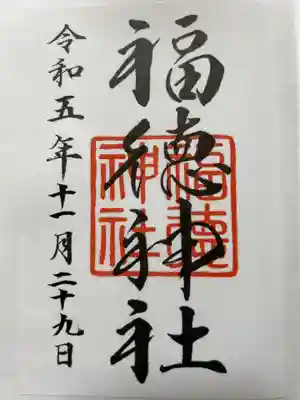 福徳神社
福徳神社
令和五年十一月二十九日